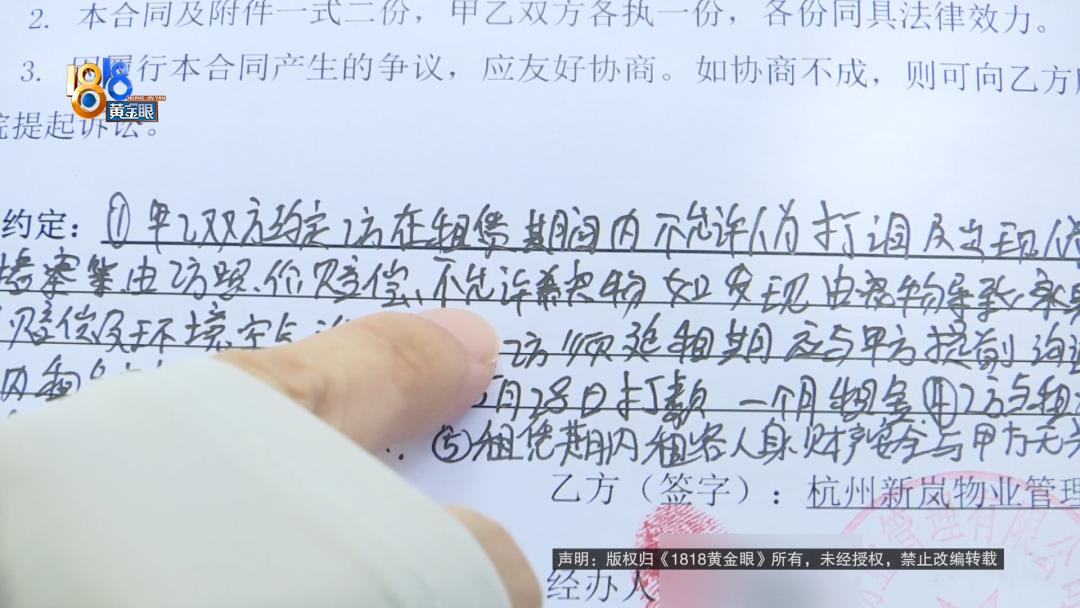 2. 本合同及附件一式二份，甲乙双方各执一份，各份同具法律效力。
1818
黄金眼
3. 履行本合同产生的争议，应友好协商。如协商不成，则可向乙方
院提起诉讼。
约定：①甲乙双方约定乙方在租赁期间内不允许 打 及出现
等由乙方照价赔偿、不允许养宠物如发现由宠物导致家具
赔偿及环境 乙方须延租期应与甲方提前沟通
内租 月28日打款一个月租金④乙方与租
⑤租赁期内租客人身财产安全与甲方无关
乙方（签字）：杭州新岚物业管理
管理有限公
声明：版权归《1818黄金眼》所有，未经授权，禁止改编转载
经办人